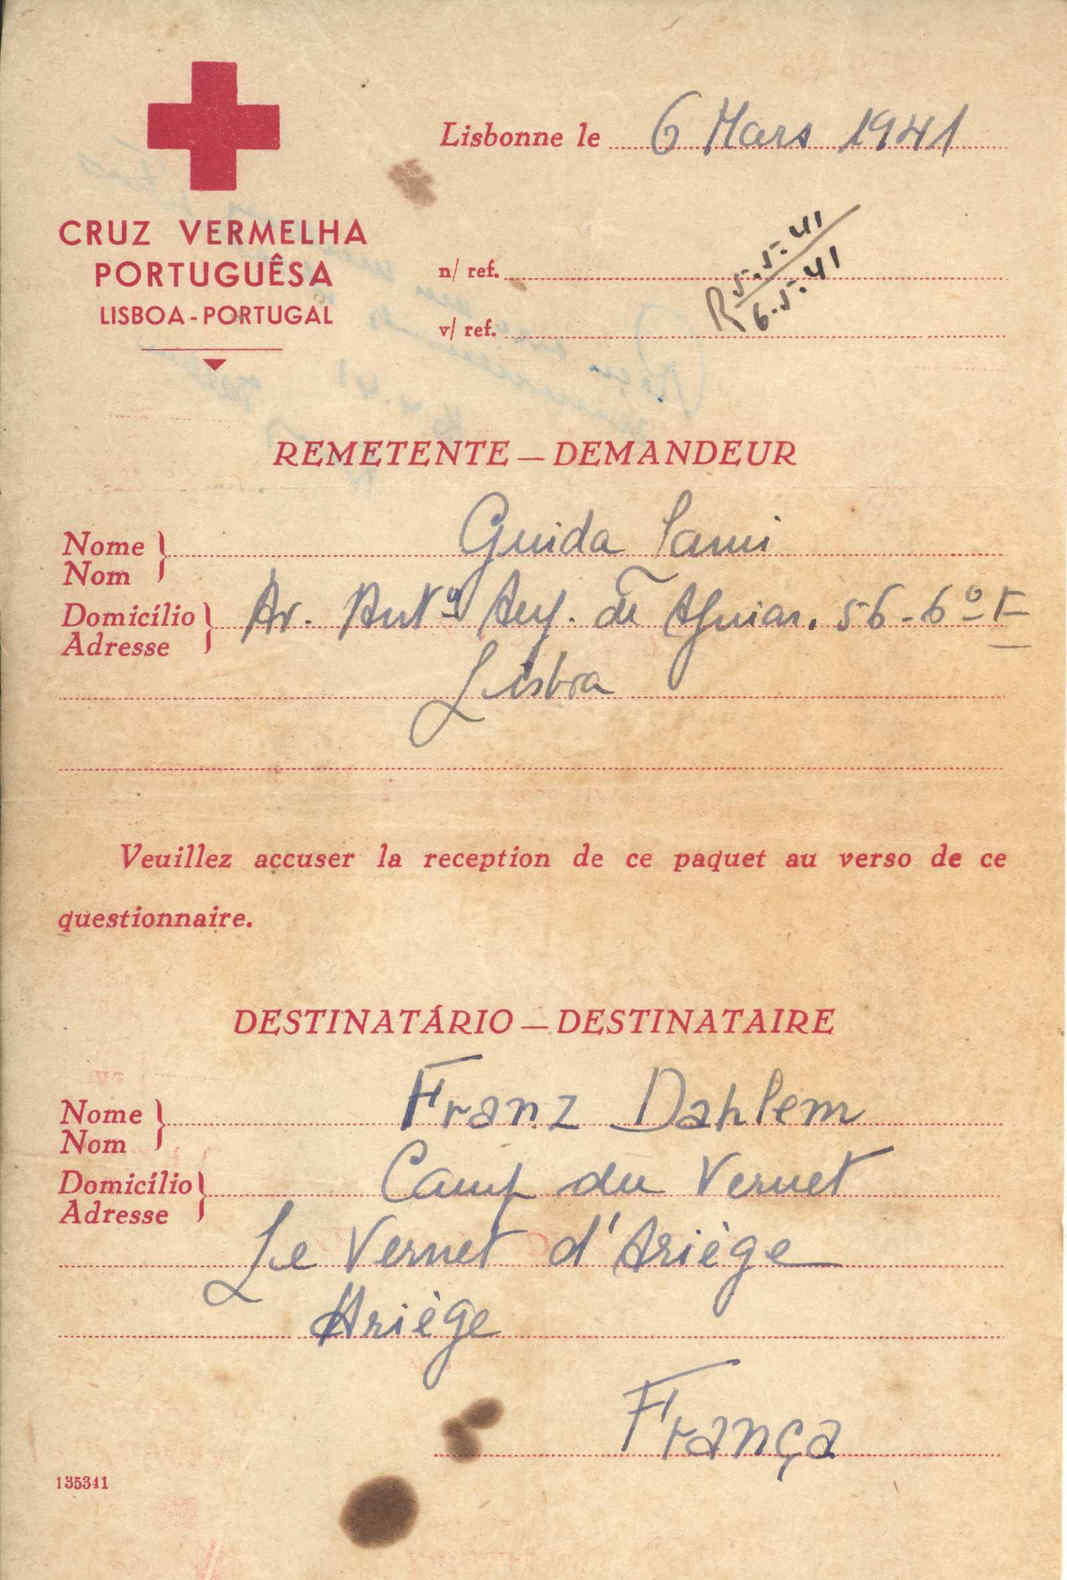 CRUZ VERMELHA
PORTUGUÊSA
LISBOA - PORTUGAL
Lisbonne le 6 Mars 1941
n/ ref.
v/ ref.
R 5.5.41
6.5.41
REMETENTE — DEMANDEUR
Nome
Nom
Guida Lami
Domicílio
Adresse
Av. Antº Aug. de Aguiar. 56-6º E
Lisboa
Veuillez accuser la reception de ce paquet au verso de ce
questionnaire.
DESTINATÁRIO — DESTINATAIRE
Nome
Nom
Franz Dahlem
Domicílio
Adresse
Camp du Vernet
Le Vernet d'Ariège
Ariège
França
135341